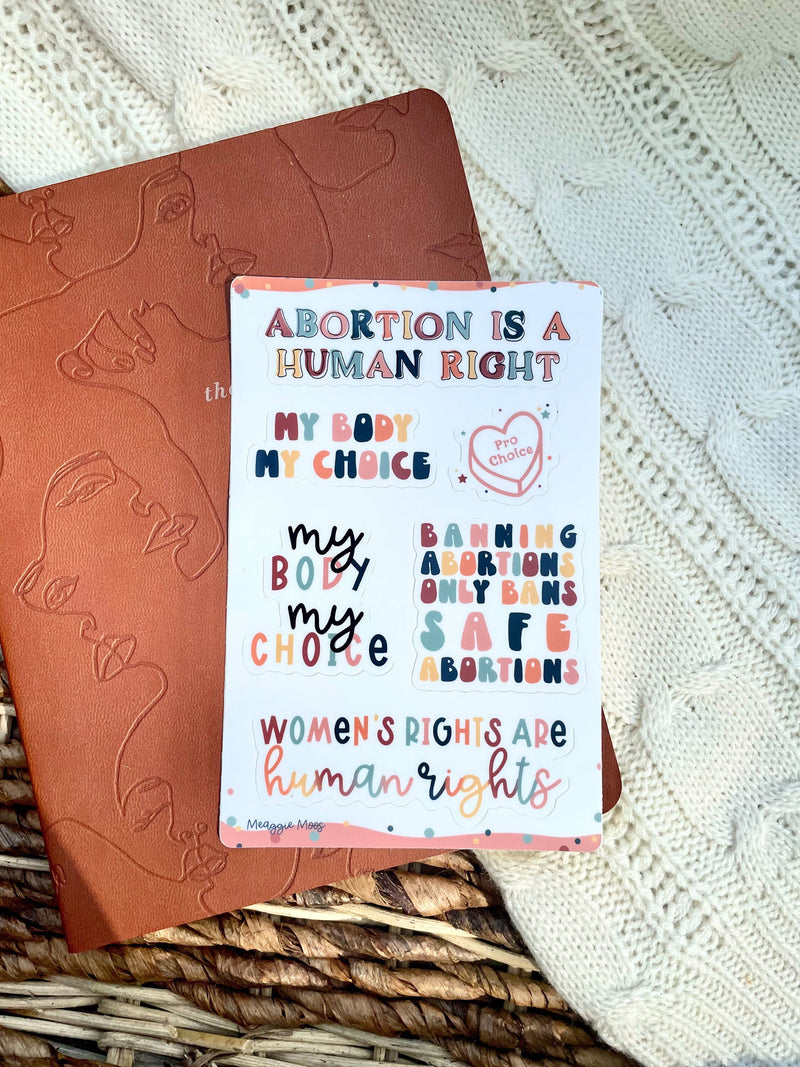 the
ABORTION IS A
HUMAN RIGHT
MY BODY
MY CHOICE
Pro
Choice
my
BODY
my
CHOICE
BANNING
ABORTIONS
ONLY BANS
SAFE
ABORTIONS
WOMEN'S RIGHTS ARE
human rights
Meaggie Moos